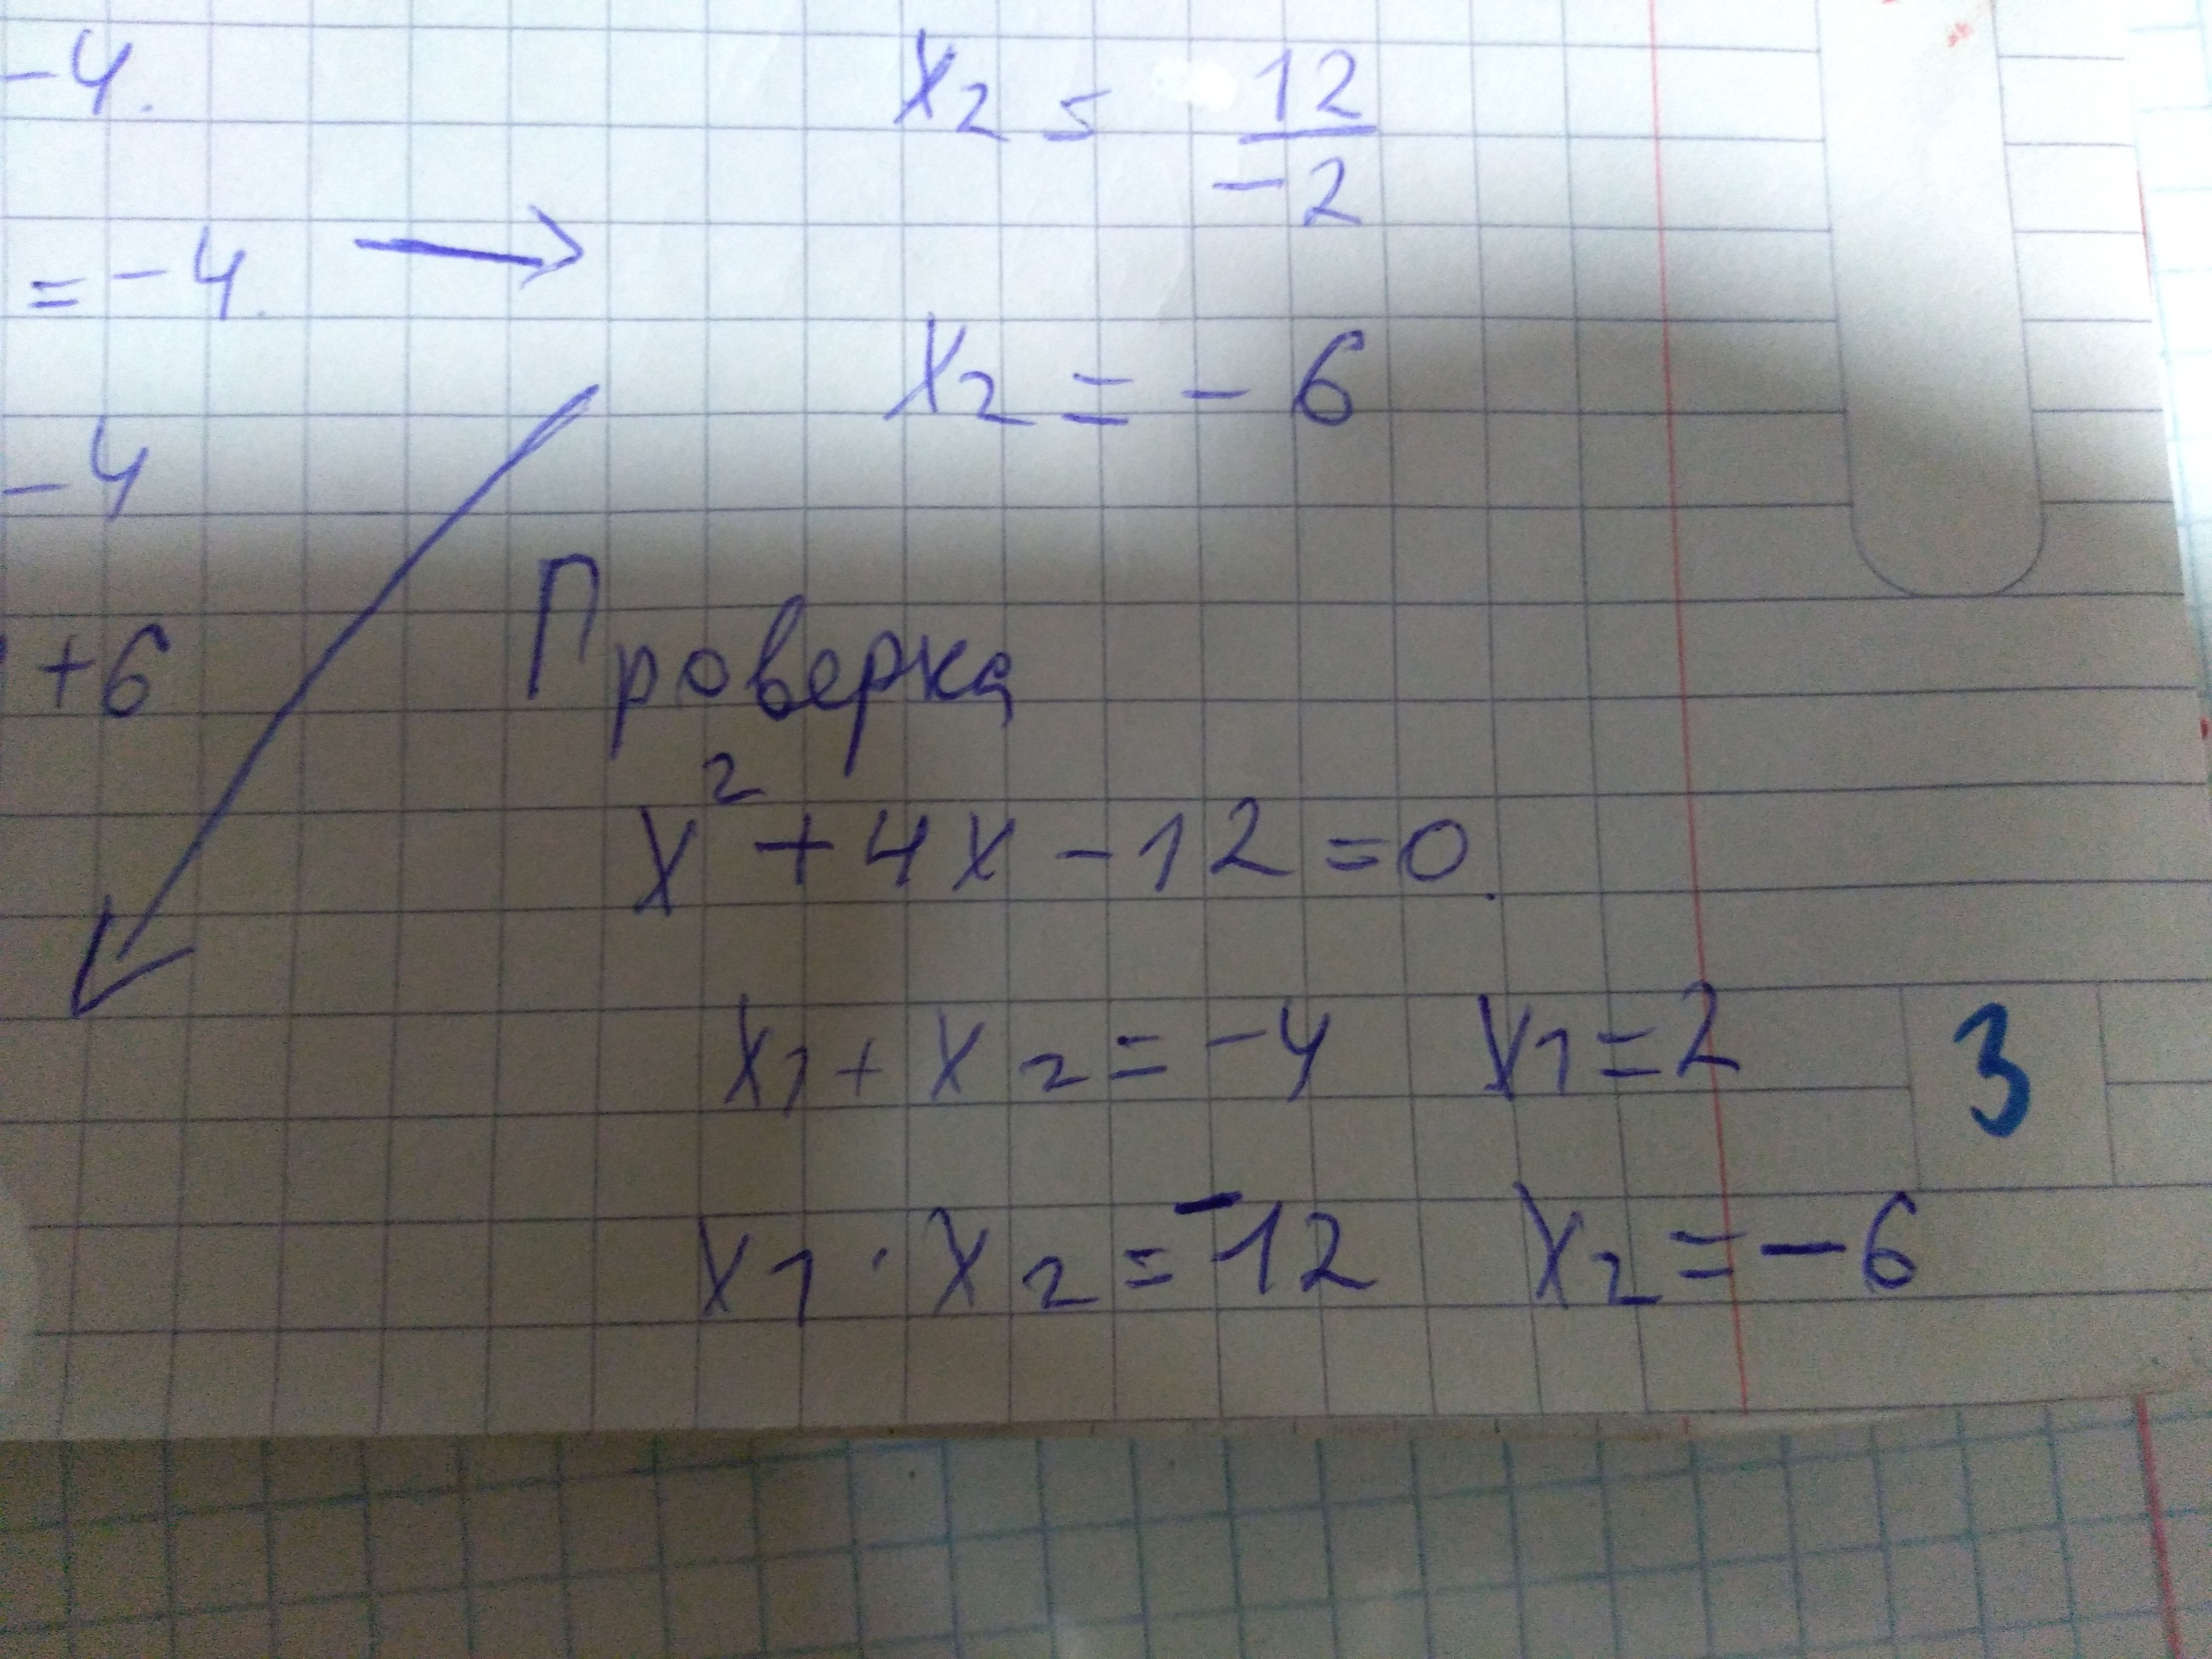 -4. x₂ = 12/-2
= -4. →
x₂ = -6
-4
+6 Проверка
x² + 4x - 12 = 0.
x₁ + x₂ = -4 x₁ = 2 3
x₁ · x₂ = -12 x₂ = -6